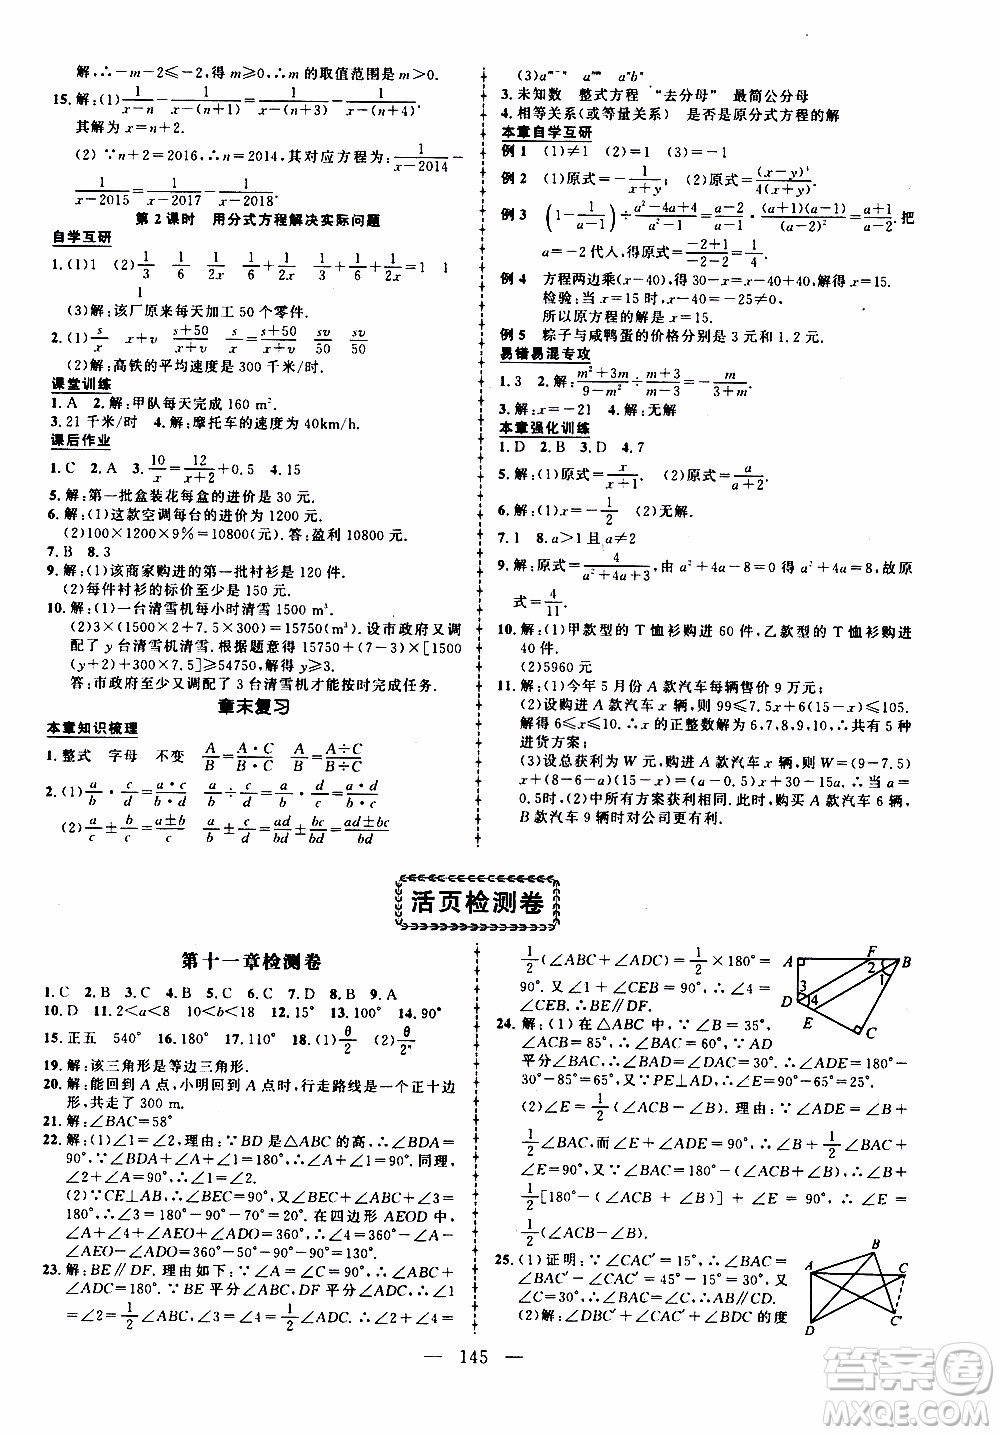 解,∴-m-2≤-2,解得 m≥0,∴m的取值范围是 m≥0.
15.解:(1)1/(x-n)-1/[x-(n+1)]=1/[x-(n+3)]-1/[x-(n+4)].
其解为 x=n+2.
(2)∵n+2=2016,∴n=2014,其对应方程为,1/(x-2014)
-1/(x-2015)=1/(x-2017)-1/(x-2018).
第2课时 用分式方程解决实际问题
自学互研
1.(1)1 (2)1/3 1/6 1/(2x) 1/3+1/6+1/(2x)=1 1
1
(3)解:该厂原来每天加工 50 个零件.
2.(1)s/x x+v (s+50)/(x+v) s/x=(s+50)/(x+v) sv/50 sv/50
(2)解:高铁的平均速度是 300 千米/时.
课堂训练
1.A 2.解:甲队每天完成 160 m².
3.21 千米/时 4.解:摩托车的速度为 40km/h.
课后作业
1.C 2.A 3.10/x=12/(x+2)+0.5 4.15
5.解:第一批盒装花每盒的进价是 30 元.
6.解:(1)这款空调每台的进价为 1200 元.
(2)100×1200×9%=10800(元).答:盈利 10800 元.
7.B 8.3
9.解:(1)该商家购进的第一批衬衫是 120 件.
(2)每件衬衫的标价至少是 150 元.
10.解:(1)一台清雪机每小时清雪 1500 m³.
(2)3×(1500×2+7.5×300)=15750(m³).设市政府又调
配了 y 台清雪机清雪.根据题意得 15750×3≤3×[1500
(y+2)+300×7.5]≥15750,解得 y≥3.
答:市政府至少又调配了 3 台清雪机才能完成任务.
章末复习
本章知识梳理
1.整式 字母 不变 A/B=(A·C)/(B·C) A/B=(A÷C)/(B÷C)
2.(1)a/b·c/d=(a·c)/(b·d) a/b÷c/d=a/b·d/c=(a·d)/(b·c)
(2)a/c±b/c=(a±b)/c a/b±c/d=ad/bd±bc/bd=(ad±bc)/bd
(3)aᵐ⁻ⁿ aᵐⁿ aⁿbⁿ
3.未知数 整式方程 “去分母” 最简公分母
4.相等关系(或等量关系) 是否是原分式方程的解
本章自学互研
例1 (1)≠1 (2)=1 (3)=-1
例2 (1)原式=-1/(x+y); (2)原式=(x-y)⁴/[4(x+y)].
例3 (1-1/(a-1))÷(a²-4a+4)/(a²-a)=(a-2)/(a-1)·(a+1)(a-1)/(a-2)²=(a+1)/(a-2).把
a=-2代人,得原式=(-2+1)/(-2-2)=1/4.
例4 方程两边乘(x-40),得 30=x-40+40,解得 x=15.
检验:当 x=15 时,x-40=-25≠0.
所以原方程的解是 x=15.
例5 粽子与咸鸭蛋的价格分别是 3 元和 1.2 元.
易错易混专攻
1.3 2.解:(m²+3m)/(9-m²)÷(m+3)/(m-3)=-m/(m+3).
3.解:x=-21 4.解:无解
本章强化训练
1.D 2.B 3.D 4.7
5.解:(1)原式=x/(x+1). (2)原式=a/(a+2).
6.解:(1)x=-1/2 (2)无解.
7.1 8.a>1且a≠2
9.解:原式=4/(a²+4a+3),由 a²+4a-8=0 得 a²+4a=8,故原
式=4/11.
10.解:(1)甲款型的 T 恤衫购进 60 件,乙款型的 T 恤衫购进
40 件.
(2)5960 元
11.解:(1)今年 5 月份 A 款汽车每辆售价 9 万元;
(2)设购进 A 款汽车 x 辆,则 99≤7.5x+6(15-x)≤105.解
得6≤x≤10.∴x 的正整数解为 6,7,8,9,10,∴共有 5 种
进货方案;
(3)设总获利为 W 元,购进 A 款汽车 x 辆,则:W=(9-7.5)
x+(8-6-a)(15-x)=(a-0.5)x+30-15a.∴当 a=
0.5时,(2)中所有方案获利相同.此时,购买 A 款汽车 6 辆,
B 款汽车 9 辆时对公司更有利.
活页检测卷
第十一章检测卷
1.C 2.B 3.B 4.C 5.C 6.C 7.D 8.B 9.A
10.D 11.2<a<8 10<b<18 12.15° 13.100° 14.90°
15.正五 540° 16.180° 17.110° 18.(1)θ/2 (2)θ/2ⁿ
19.解:该三角形是等边三角形.
20.解:能回到 A 点,小明回到 A 点时,行走路线是一个正十边
形,共走了 300 m.
21.解:∠BAC=58°
22.解:(1)∠1=∠2,理由:∵BD 是△ABC 的高,∴∠BDA=
90°.∴∠BDA+∠A+∠1=180°.∴∠A+∠1=90°.同理,
∠2+∠A=90°,∴∠1=∠2.
(2)∵CE⊥AB,∴∠AEO=90°,又∵在四边形 AEOD 中,
∠A+∠4+∠AEO+∠ADO=360°.∴∠4=360°-∠A
-∠AEO-∠ADO=360°-50°-90°-90°=130°.
23.解:BE∥DF.理由如下:∵∠A=∠C=90°,∴∠ABC+
∠ADC=180°.∵BE 平分∠ABC,DF 平分∠ADC,∴∠1
=∠2=1/2∠ABC,∠3=∠4=1/2∠ADC.∴∠2+∠4=
1/2(∠ABC+∠ADC)=1/2×180°=
90°.又∵∠1+∠CEB=90°,∴∠4=
∠CEB.∴BE∥DF.
24.解:(1)在△ABC 中,∵∠B=35°,
∠ACB=85°,∴∠BAC=60°.∵AD
平分∠BAC,∴∠BAD=∠DAC=30°,∴∠ADE=∠B+
∠BAD=65°.又∵PE⊥AD,∴∠DPE=90°.∴∠E=25°;
(2)∠E=1/2(∠ACB-∠B).理由:∵∠ADC+∠E=90°,
∠E=90°-∠ADC.∵∠ADC=∠B+∠BAD=∠B+1/2
∠BAC,∴∠E+∠B+1/2∠BAC=90°,∴∠B+∠E+
1/2[180°-(∠B+∠ACB)]=90°,∴∠E=
1/2(∠ACB-∠B).
25.(1)证明:∵∠CAC′=15°,∴∠BAC=
∠BAC′-∠CAC′=45°-15°=30°.又∵
∠C=30°,∴∠BAC=∠C,∴AB∥CD.
(2)解:∠DBC′+∠CAC′+∠BDC 的度
— 145 —
答案圈
MXQE.COM